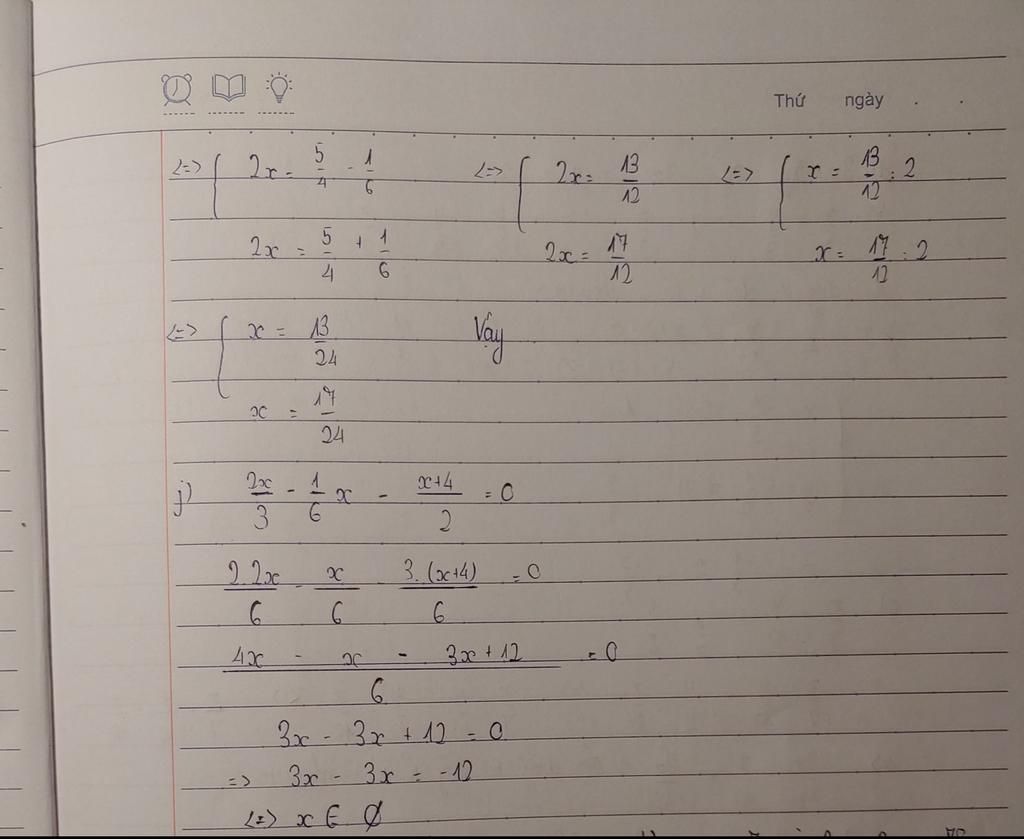 Thứ ngày . .
<=> { 2x = 5/4 - 1/6 <=> { 2x = 13/12 <=> { x = 13/12 : 2
2x = 5/4 + 1/6 2x = 17/12 x = 17/12 : 2
<=> { x = 13/24 Vậy
x = 17/24
j) 2x/3 - 1/6 x - x+4/2 = 0
2.2x/6 - x/6 - 3.(x+4)/6 = 0
4x - x - 3x + 12/6 = 0
3x - 3x + 12 = 0
=> 3x - 3x = -12
<=> x ∈ ∅